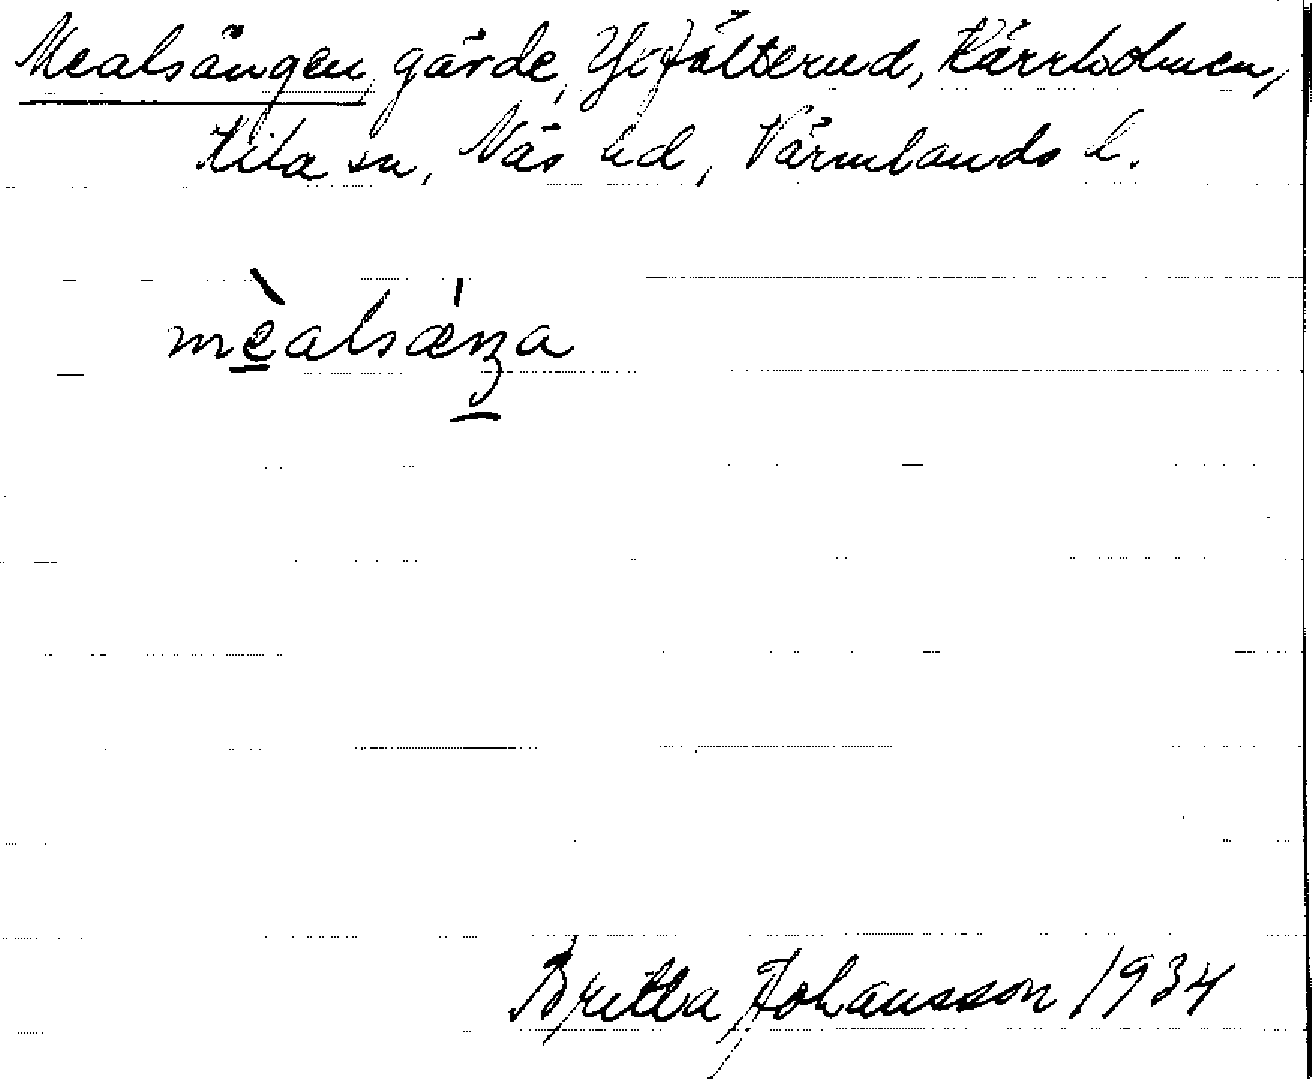 Mealsängen, gärde, Yg Fälterud, Kärrholmen,
Kila sn, Näs hd, Värmlands l.
mèalsæŋa
Britta Johansson 1934